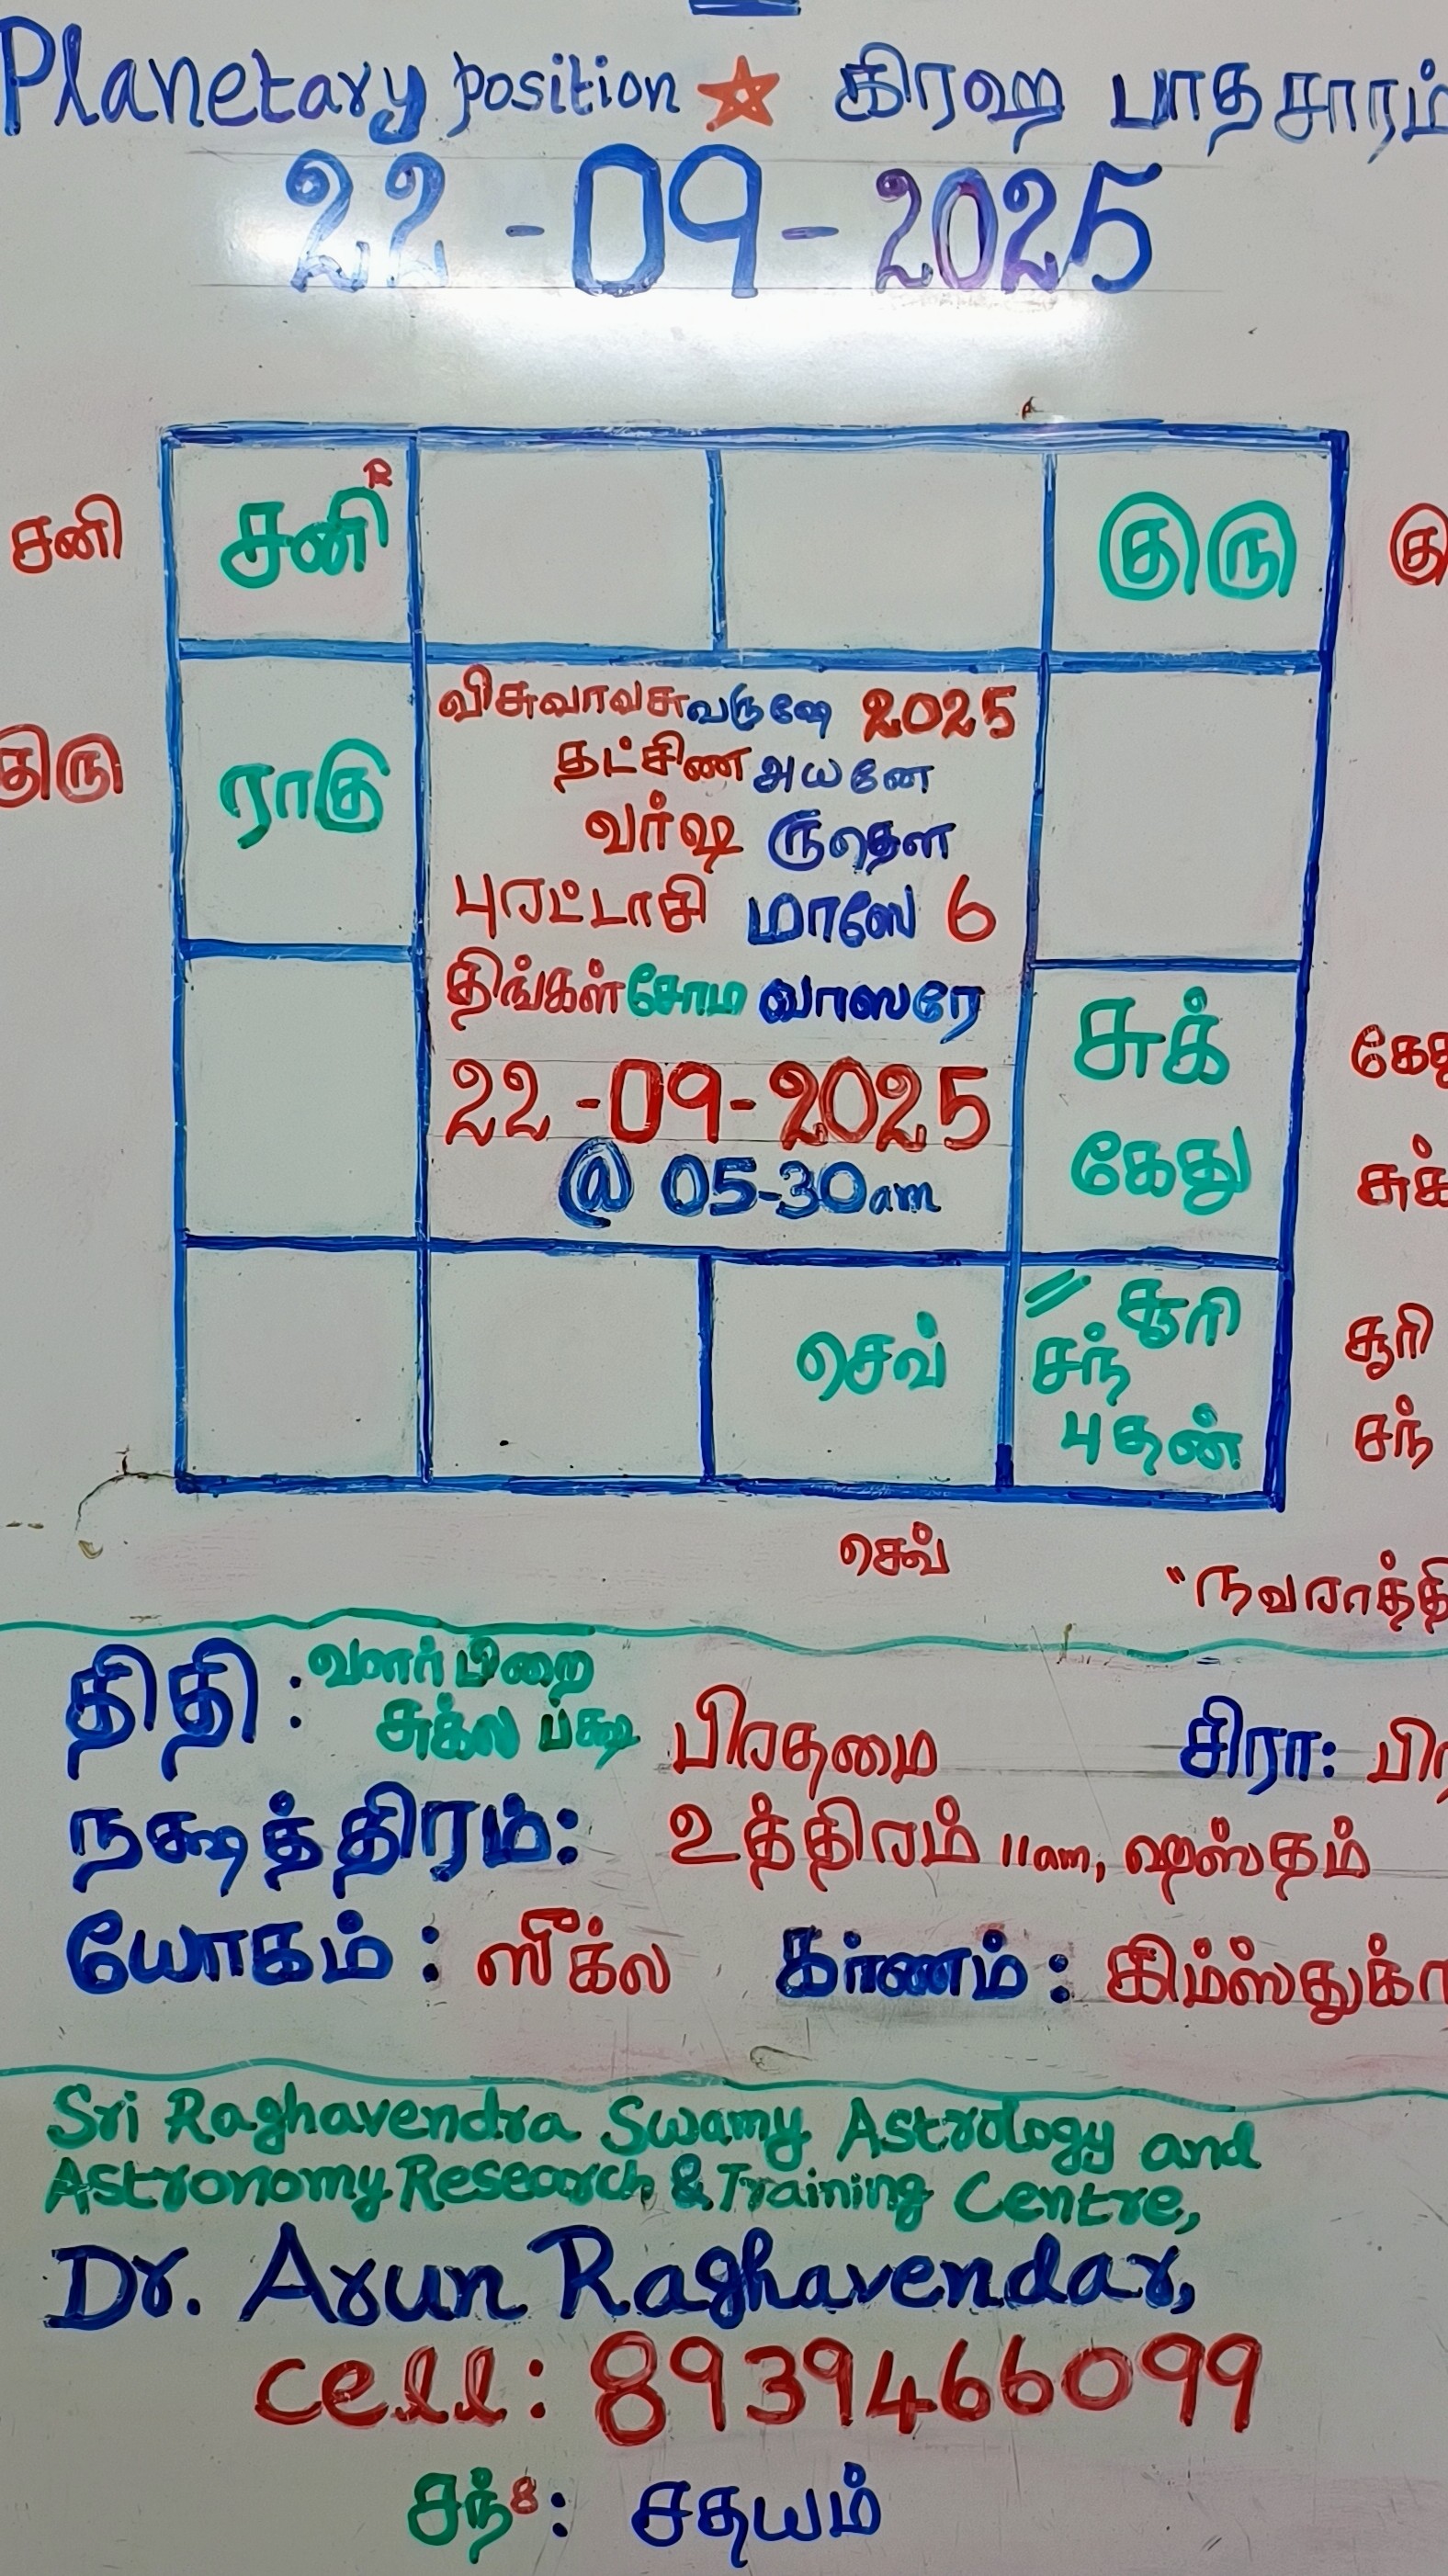 Planetary position ☆ கிரஹ பாதசாரம்
22-09-2025
சனி சனி R குரு
குரு ராகு
விசுவாவசுவருஷே 2025
தட்சிண அயனே
வர்ஷ ருதௌ
புரட்டாசி மாஸே 6
திங்கள் சோம வாஸரே
22-09-2025
@ 05-30am
சுக்
கேது
சுக்
செவ்
" சூரி
சந்
புதன்
சூரி
சந்
செவ்
திதி : வளர்பிறை
சுக்ல பக்ஷ பிரதமை சிரா:
நக்ஷத்திரம்: உத்திரம் 11am, ஹஸ்தம்
யோகம் : ஸீக்ல கர்ணம் :
Sri Raghavendra Swamy Astrology and
Astronomy Research & Training Centre,
Dr. Arun Raghavendar,
cell: 8939466099
சந்8: சதயம்